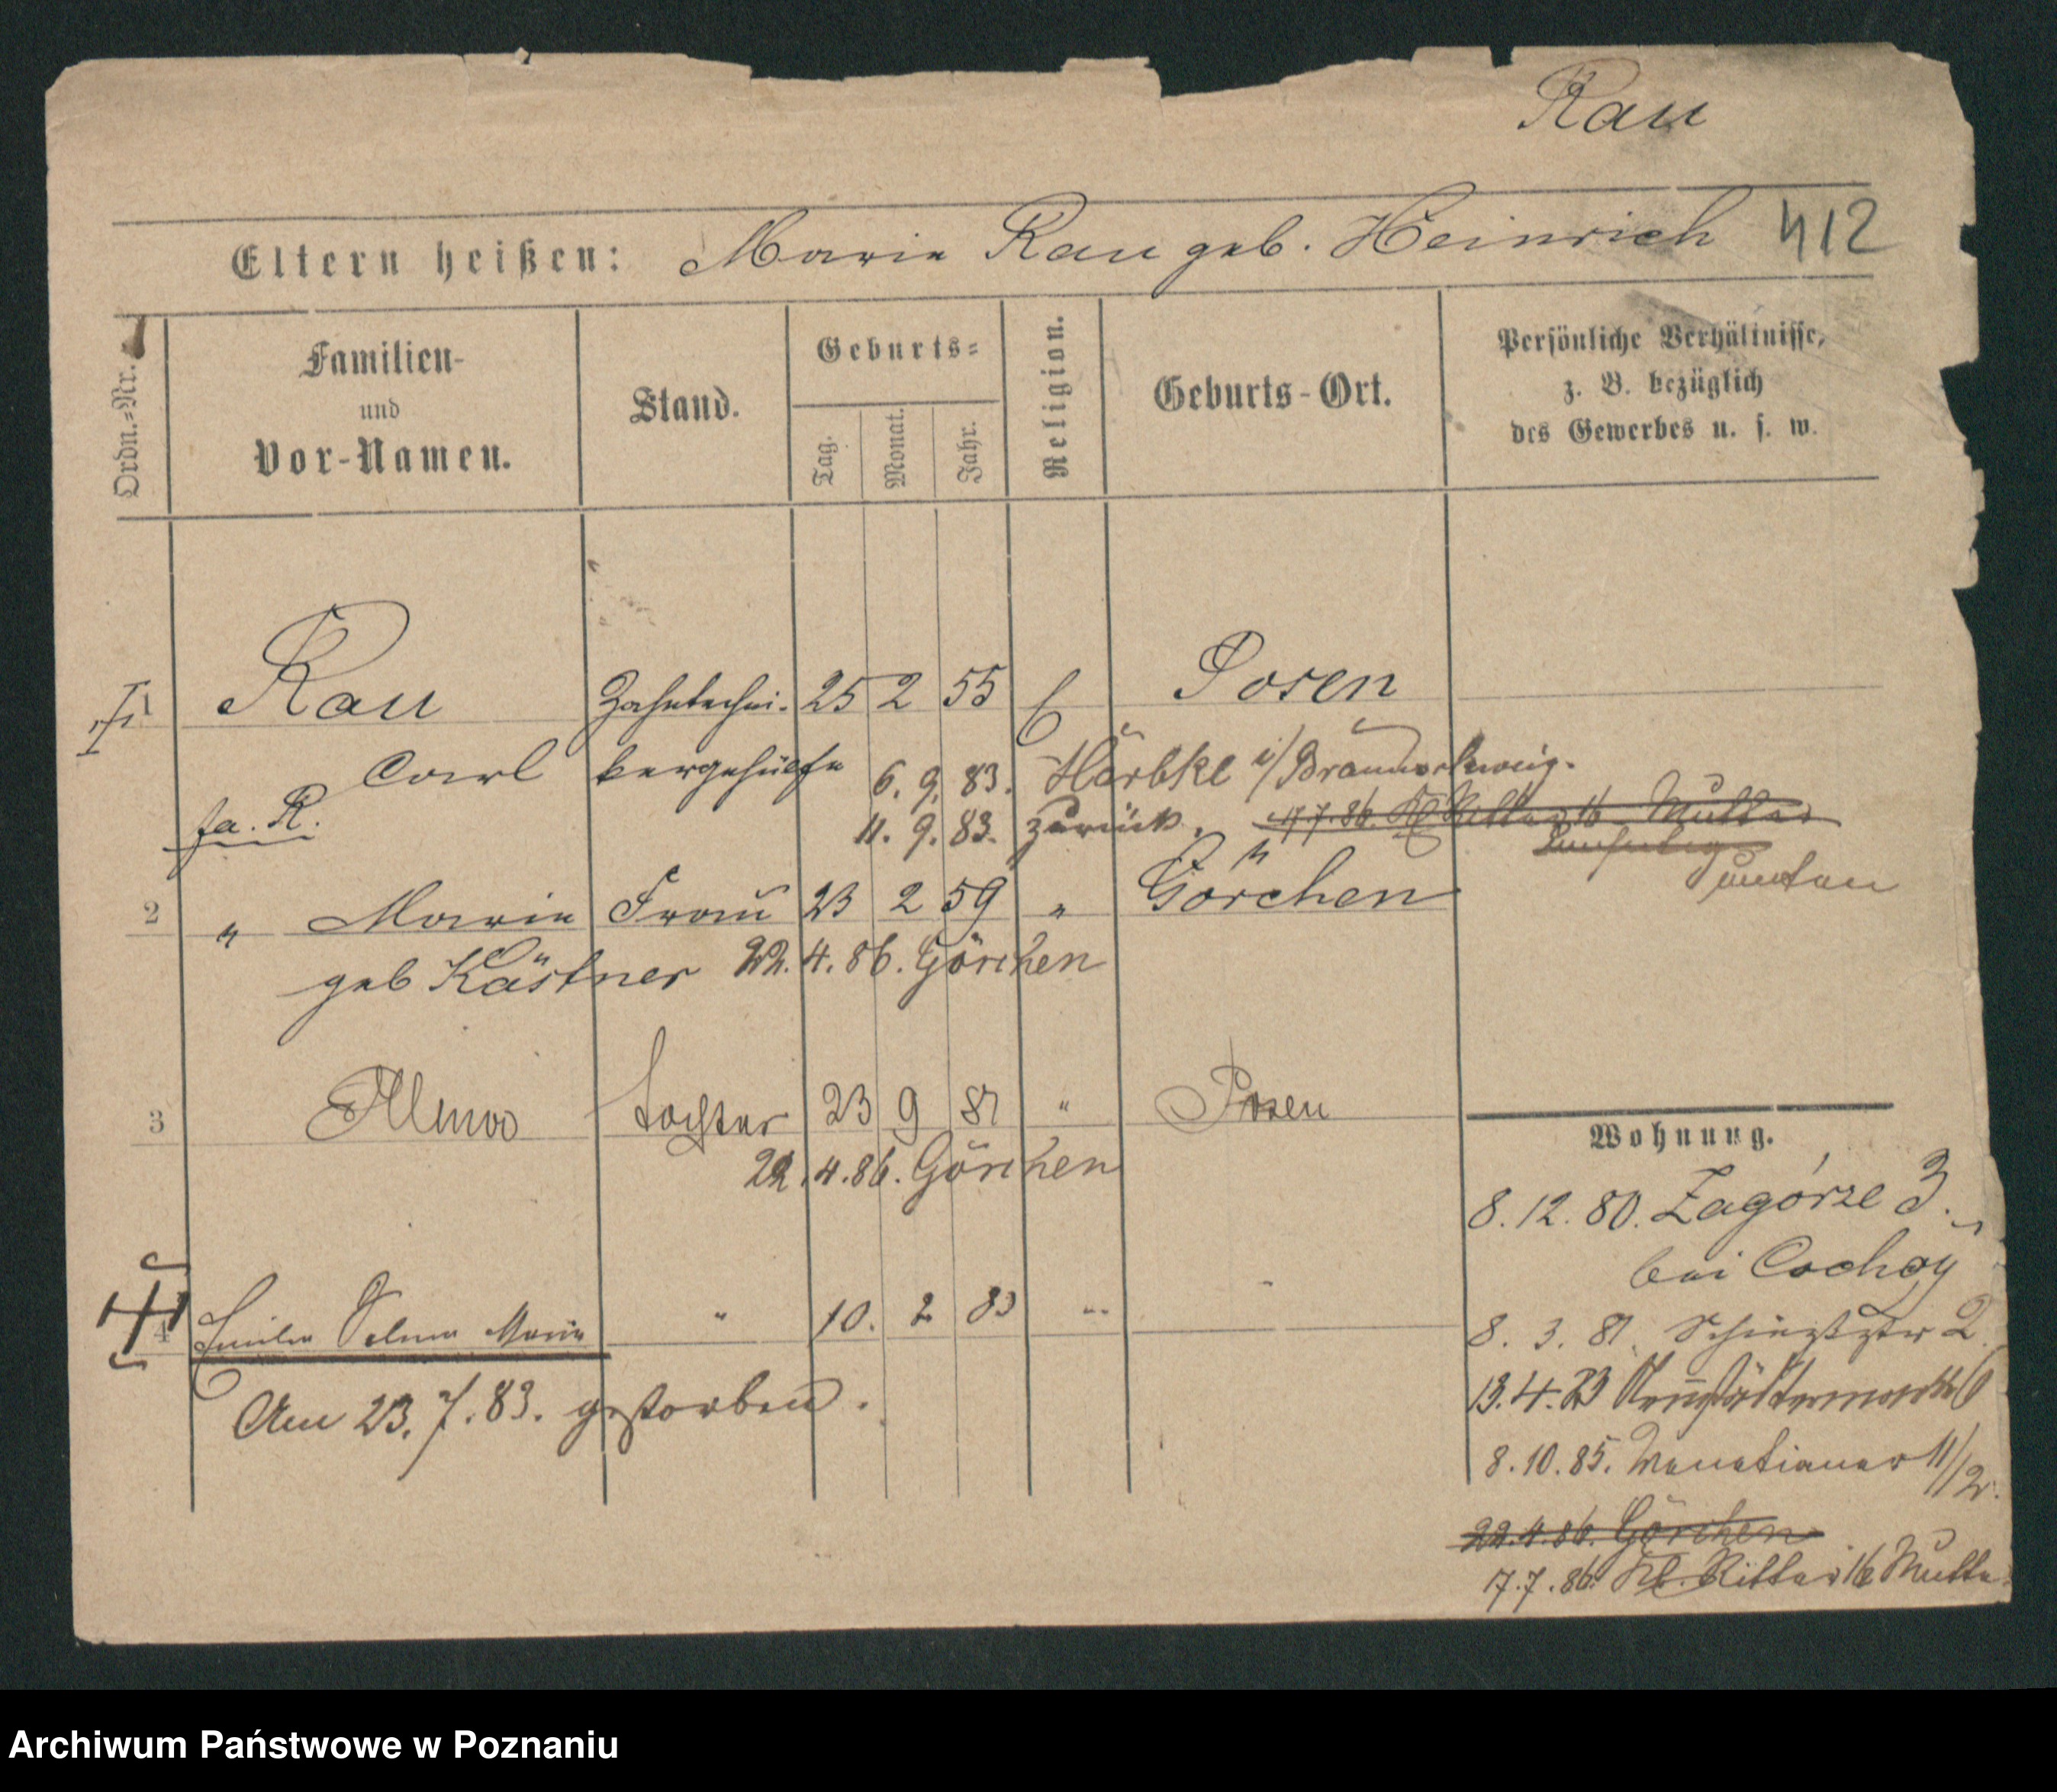 Rau
Eltern heißen: Marie Rau geb. Heinrich 412
Ordn.=Nr.
Familien-
und
Vor-Namen.
Stand.
Geburts=
Tag. Monat. Jahr.
Religion.
Geburts-Ort.
Persönliche Verhältnisse,
z. B. bezüglich
des Gewerbes u. s. w.
1 Rau Zahntechni- 25 2 55 Posen
Carl kergehülfe 6. 9. 83. Härbke i/Braunschweig.
fa. R. 11. 9. 83. zurück. 17.7.86. Kl. Ritter 16 Mutter
unten
2 " Marie Frau 23 2 59 " Görchen
geb Kästner 22. 4. 86. Görchen
3 Alma Tochter 23 9 81 " Posen
22. 4. 86. Görchen
Wohnung.
8. 12. 80. Zagórze 3.
bei Cochoy
4 Emilie Selma Marie " 10. 2 83 "
8. 3. 81. Schießstr 2
Am 23. 7. 83. gestorben.
13. 4. 83 Neustädtermarkt 6
8. 10. 85. Venetianer 11/12.
22. 4. 86. Görchen
17. 7. 86. Kl. Ritter 16 Mutter
Archiwum Państwowe w Poznaniu